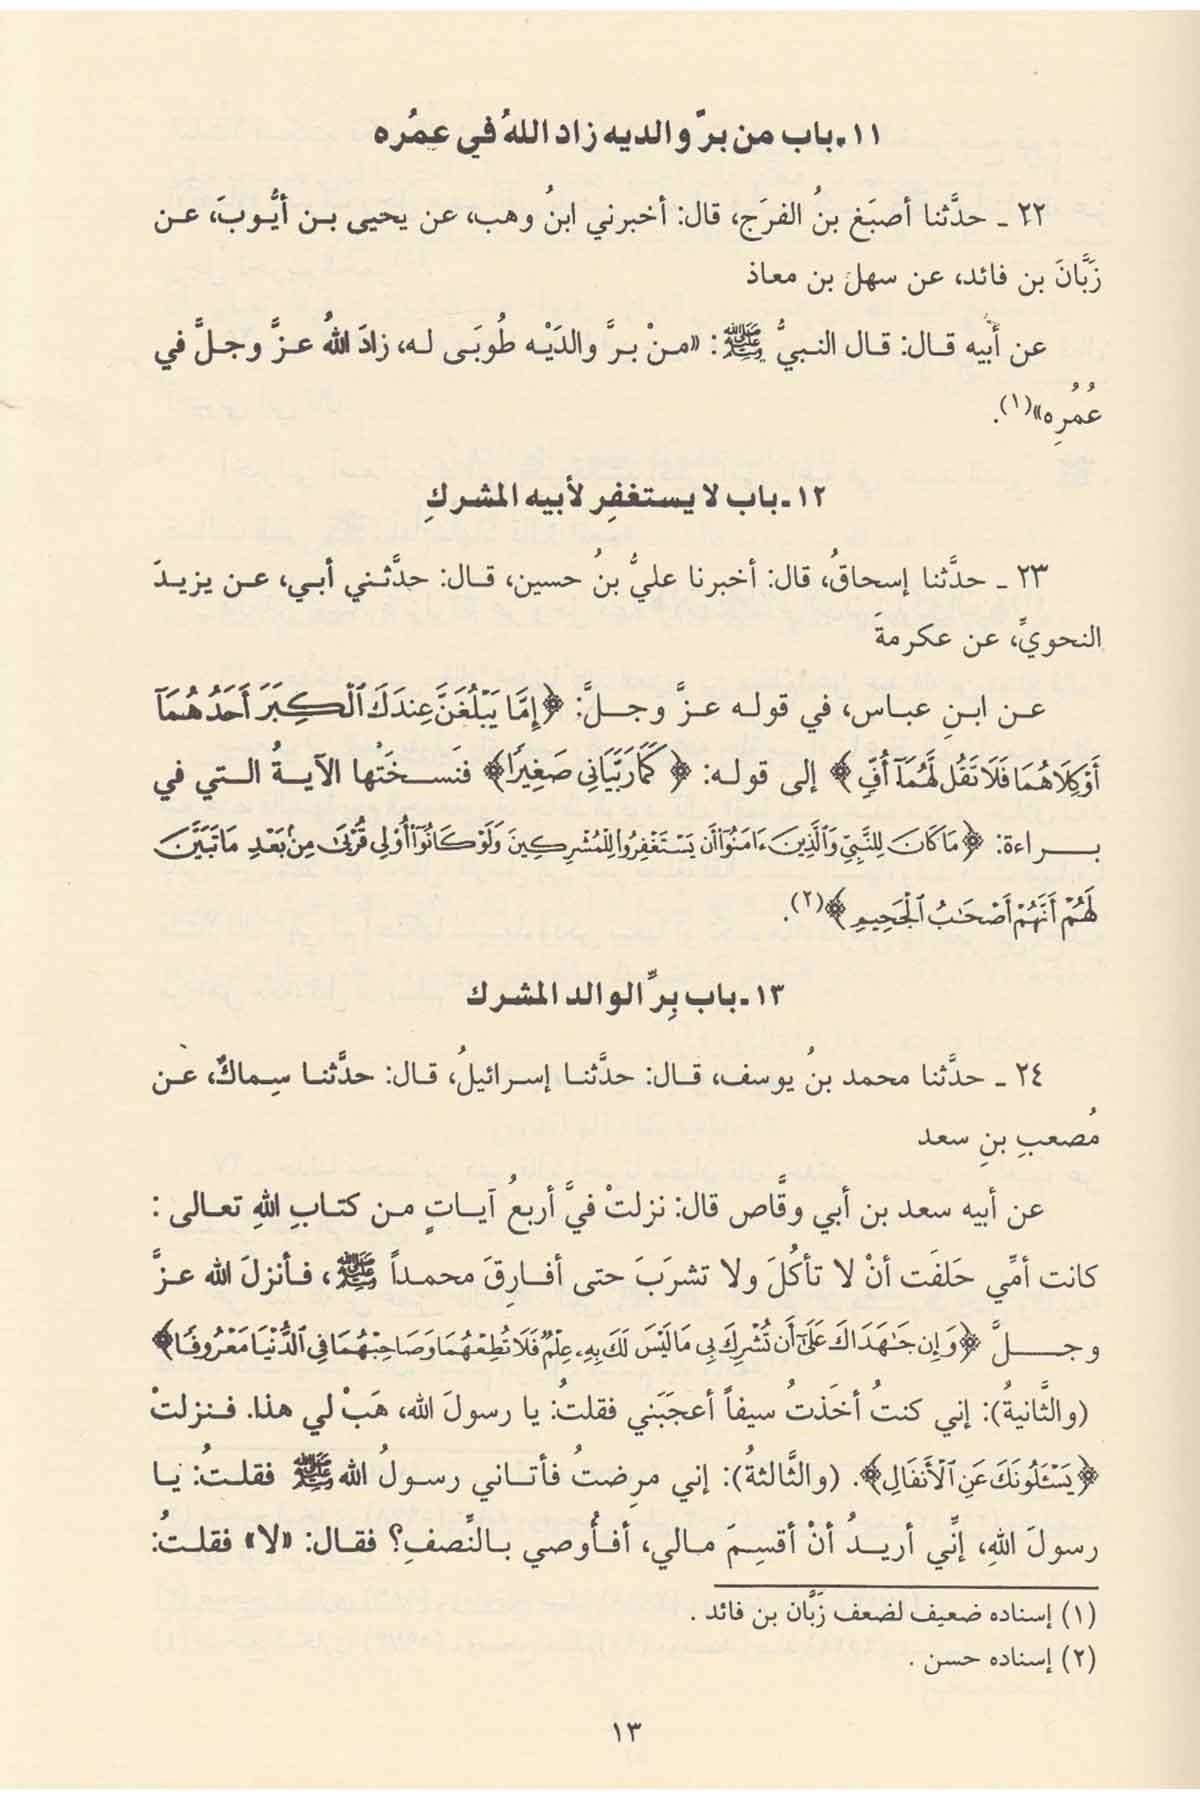 ١١ـ باب من برَّ والديه زاد اللهُ في عمُره
٢٢ ـ حدَّثنا أصبَغ بنُ الفرَج، قال: أخبرني ابنُ وهب، عن يحيى بـن أيُّوبَ، عـن
زَبَّانَ بن فائد، عن سهل بن معاذ
عن أبيه قـال: قـال النـبيُّ ﷺ: «مـنْ بـرَّ والدَيْـه طُوبَـى لـه، زادَ اللهُ عـزَّ وجـلَّ في
عُمُرِه»(١).
١٢ـ باب لا يستغفِر لأبيه المشركِ
٢٣ ـ حدَّثنا إسحاقُ، قال: أخبرنا عليُّ بنُ حسين، قـال: حدَّثـني أبـي، عـن يزيـدَ
النحويِّ، عن عكرمةَ
عـن ابـنِ عبـاس، في قولـه عـزَّ وجـلَّ: ﴿إِمَّا يَبْلُغَنَّ عِندَكَ ٱلْكِبَرَ أَحَدُهُمَآ
أَوْ كِلَاهُمَا فَلَا تَقُل لَّهُمَآ أُفٍّ﴾ إلى قولـه: ﴿كَمَا رَبَّيَانِي صَغِيرًا﴾ فنَسـختْها الآيـةُ الـتي في
بـراءة: ﴿مَا كَانَ لِلنَّبِيِّ وَٱلَّذِينَ ءَامَنُوٓا۟ أَن يَسْتَغْفِرُوا۟ لِلْمُشْرِكِينَ وَلَوْ كَانُوٓا۟ أُو۟لِي قُرْبَىٰ مِنۢ بَعْدِ مَا تَبَيَّنَ
لَهُمْ أَنَّهُمْ أَصْحَٰبُ ٱلْجَحِيمِ﴾(٢).
١٣ـ باب بِرِّ الوالد المشرك
٢٤ ـ حدَّثنا محمد بنُ يوسف، قـال: حدَّثنـا إسـرائيلُ، قـال: حدَّثنـا سِـماكٌ، عـن
مُصعبِ بنِ سعد
عن أبيه سعد بن أبي وقَّاص قال: نزلتْ فيَّ أربعُ آيـاتٍ مـن كتـابِ اللهِ تعـالى :
كانت أمِّي حَلفَت أنْ لا تأكُلَ ولا تشرَبَ حتى أفـارِقَ محمـداً ﷺ، فـأنزلَ الله عـزَّ
وجـلَّ ﴿وَإِن جَٰهَدَاكَ عَلَىٰٓ أَن تُشْرِكَ بِي مَا لَيْسَ لَكَ بِهِۦ عِلْمٌ فَلَا تُطِعْهُمَا وَصَاحِبْهُمَا فِي ٱلدُّنْيَا مَعْرُوفًا﴾
(والثَّانيةُ): إني كنتُ أخَذتُ سيفاً أعجبَني فقلتُ: يا رسولَ الله، هَبْ لي هذا. فـنزلتْ
﴿يَسْـَٔلُونَكَ عَنِ ٱلْأَنفَالِ﴾. (والثَّالثةُ): إني مرِضتُ فأتـاني رسـولُ الله ﷺ فقلـتُ: يـا
رسولَ اللهِ، إنِّي أريـدُ أنْ أقسِـمَ مـالي، أفـأُوصي بـالنِّصفِ؟ فقـال: «لا» فقلـتُ:
(١) إسناده ضعيف لضعف زَبَّان بن فائد .
(٢) إسناده حسن .
١٣